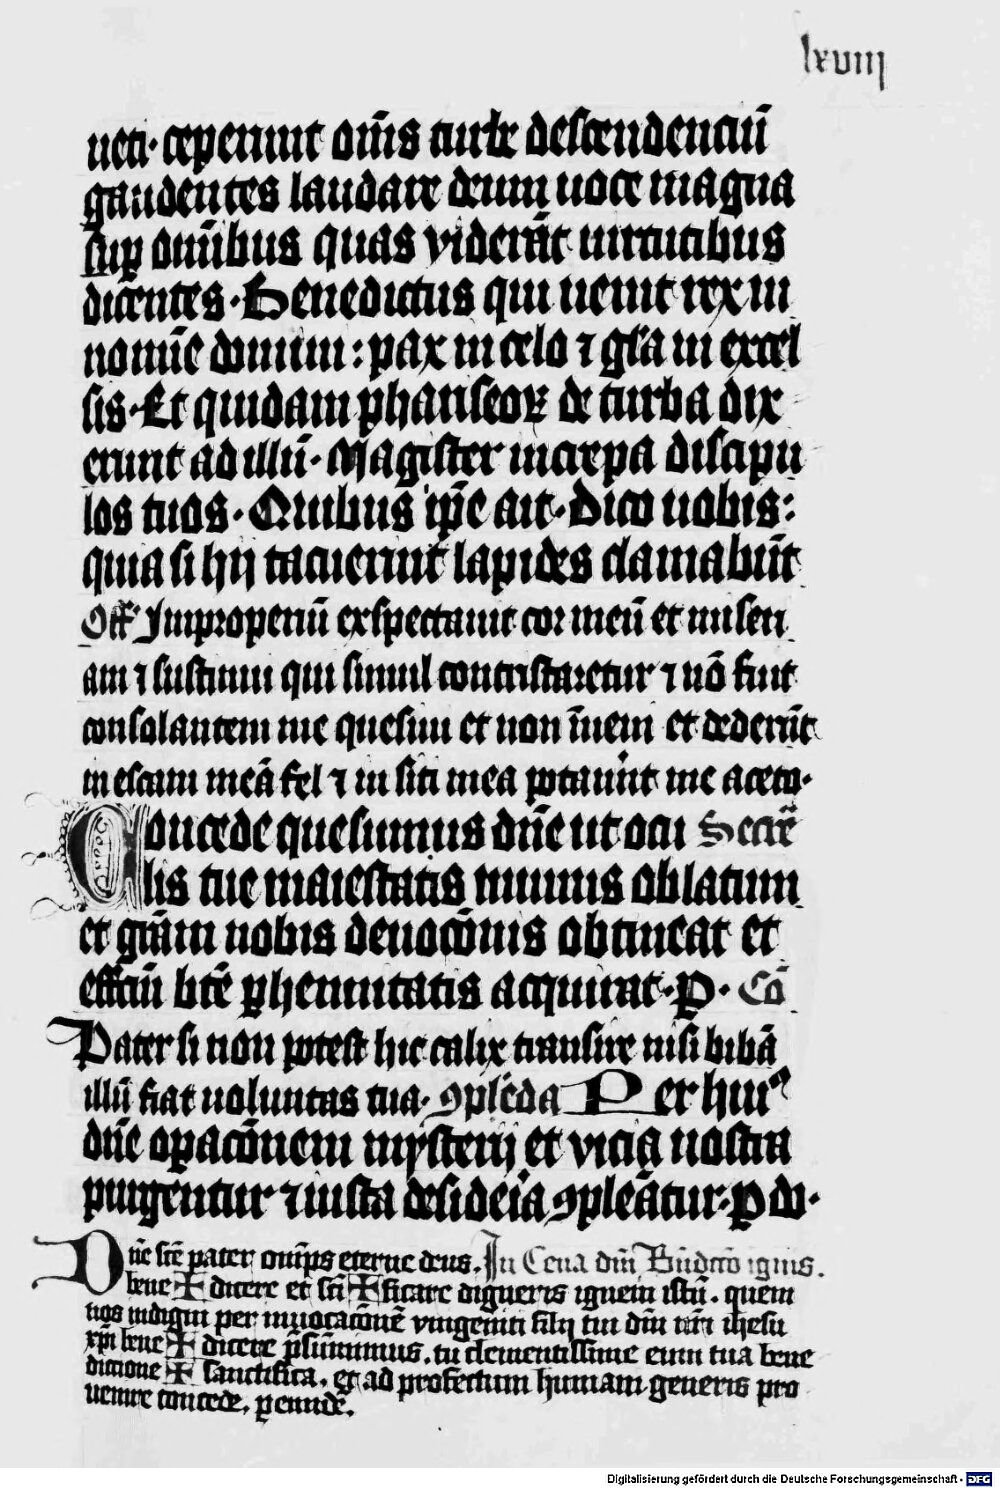 lxviij
ueti. ceperunt om̄s turbe descendenciū
gaudentes laudare deum uoce magna
suꝑ om̄ibus quas viderāt uirtutibus
dicentes. Benedictus qui uenit rex in
nomīe domini: pax in celo ⁊ gl̄a in excel
sis. Et quidam phariseoꝝ de turba dix
erunt ad illū. Magister increpa discipu
los tuos. Quibus ip̄e ait. Dico uobis:
quia si hij tacuerint lapides clamabūt
Off̄ Improperiū exspectauit cor meū et miseri
am ⁊ sustinui qui simul contristaretur ⁊ nō fuit
consolantem me quesiui et non īueni et dederūt
in escam meā fel ⁊ in siti mea potauer̄t me aceto.
Concede quesumus dn̄e ut ocu Secrē
lis tue maiestatis munus oblatum
et grām nobis deuocōnis obtineat et
effcm̄ btē ꝑhennitatis acquirat. P. Cō
Pater si non potest hic calix transire nisi bibā
illū fiat uoluntas tua. ꝯplēda Per huiꝰ
dn̄e oꝑacōnem mysterij et vicia nostra
purgentur ⁊ iusta desideria ꝯpleātur. P dn̄.
Dn̄e sc̄e pater om̄ps eterne deus. In Cena dnī Bn̄dccō ignis.
bene ✠ dicere et sc̄i ✠ ficare digneris ignem istū. quem
nos indigni per inuocacōnē vnigeniti filij tui dnī nr̄i ihesu
xp̄i bene ✠ dicere p̄sumimus. tu clementissime eum tua bene
dictione ✠ sanctifica. et ad profectum humani generis pro
uenire concede. ꝑ eundē.
Digitalisierung gefördert durch die Deutsche Forschungsgemeinschaft - DFG